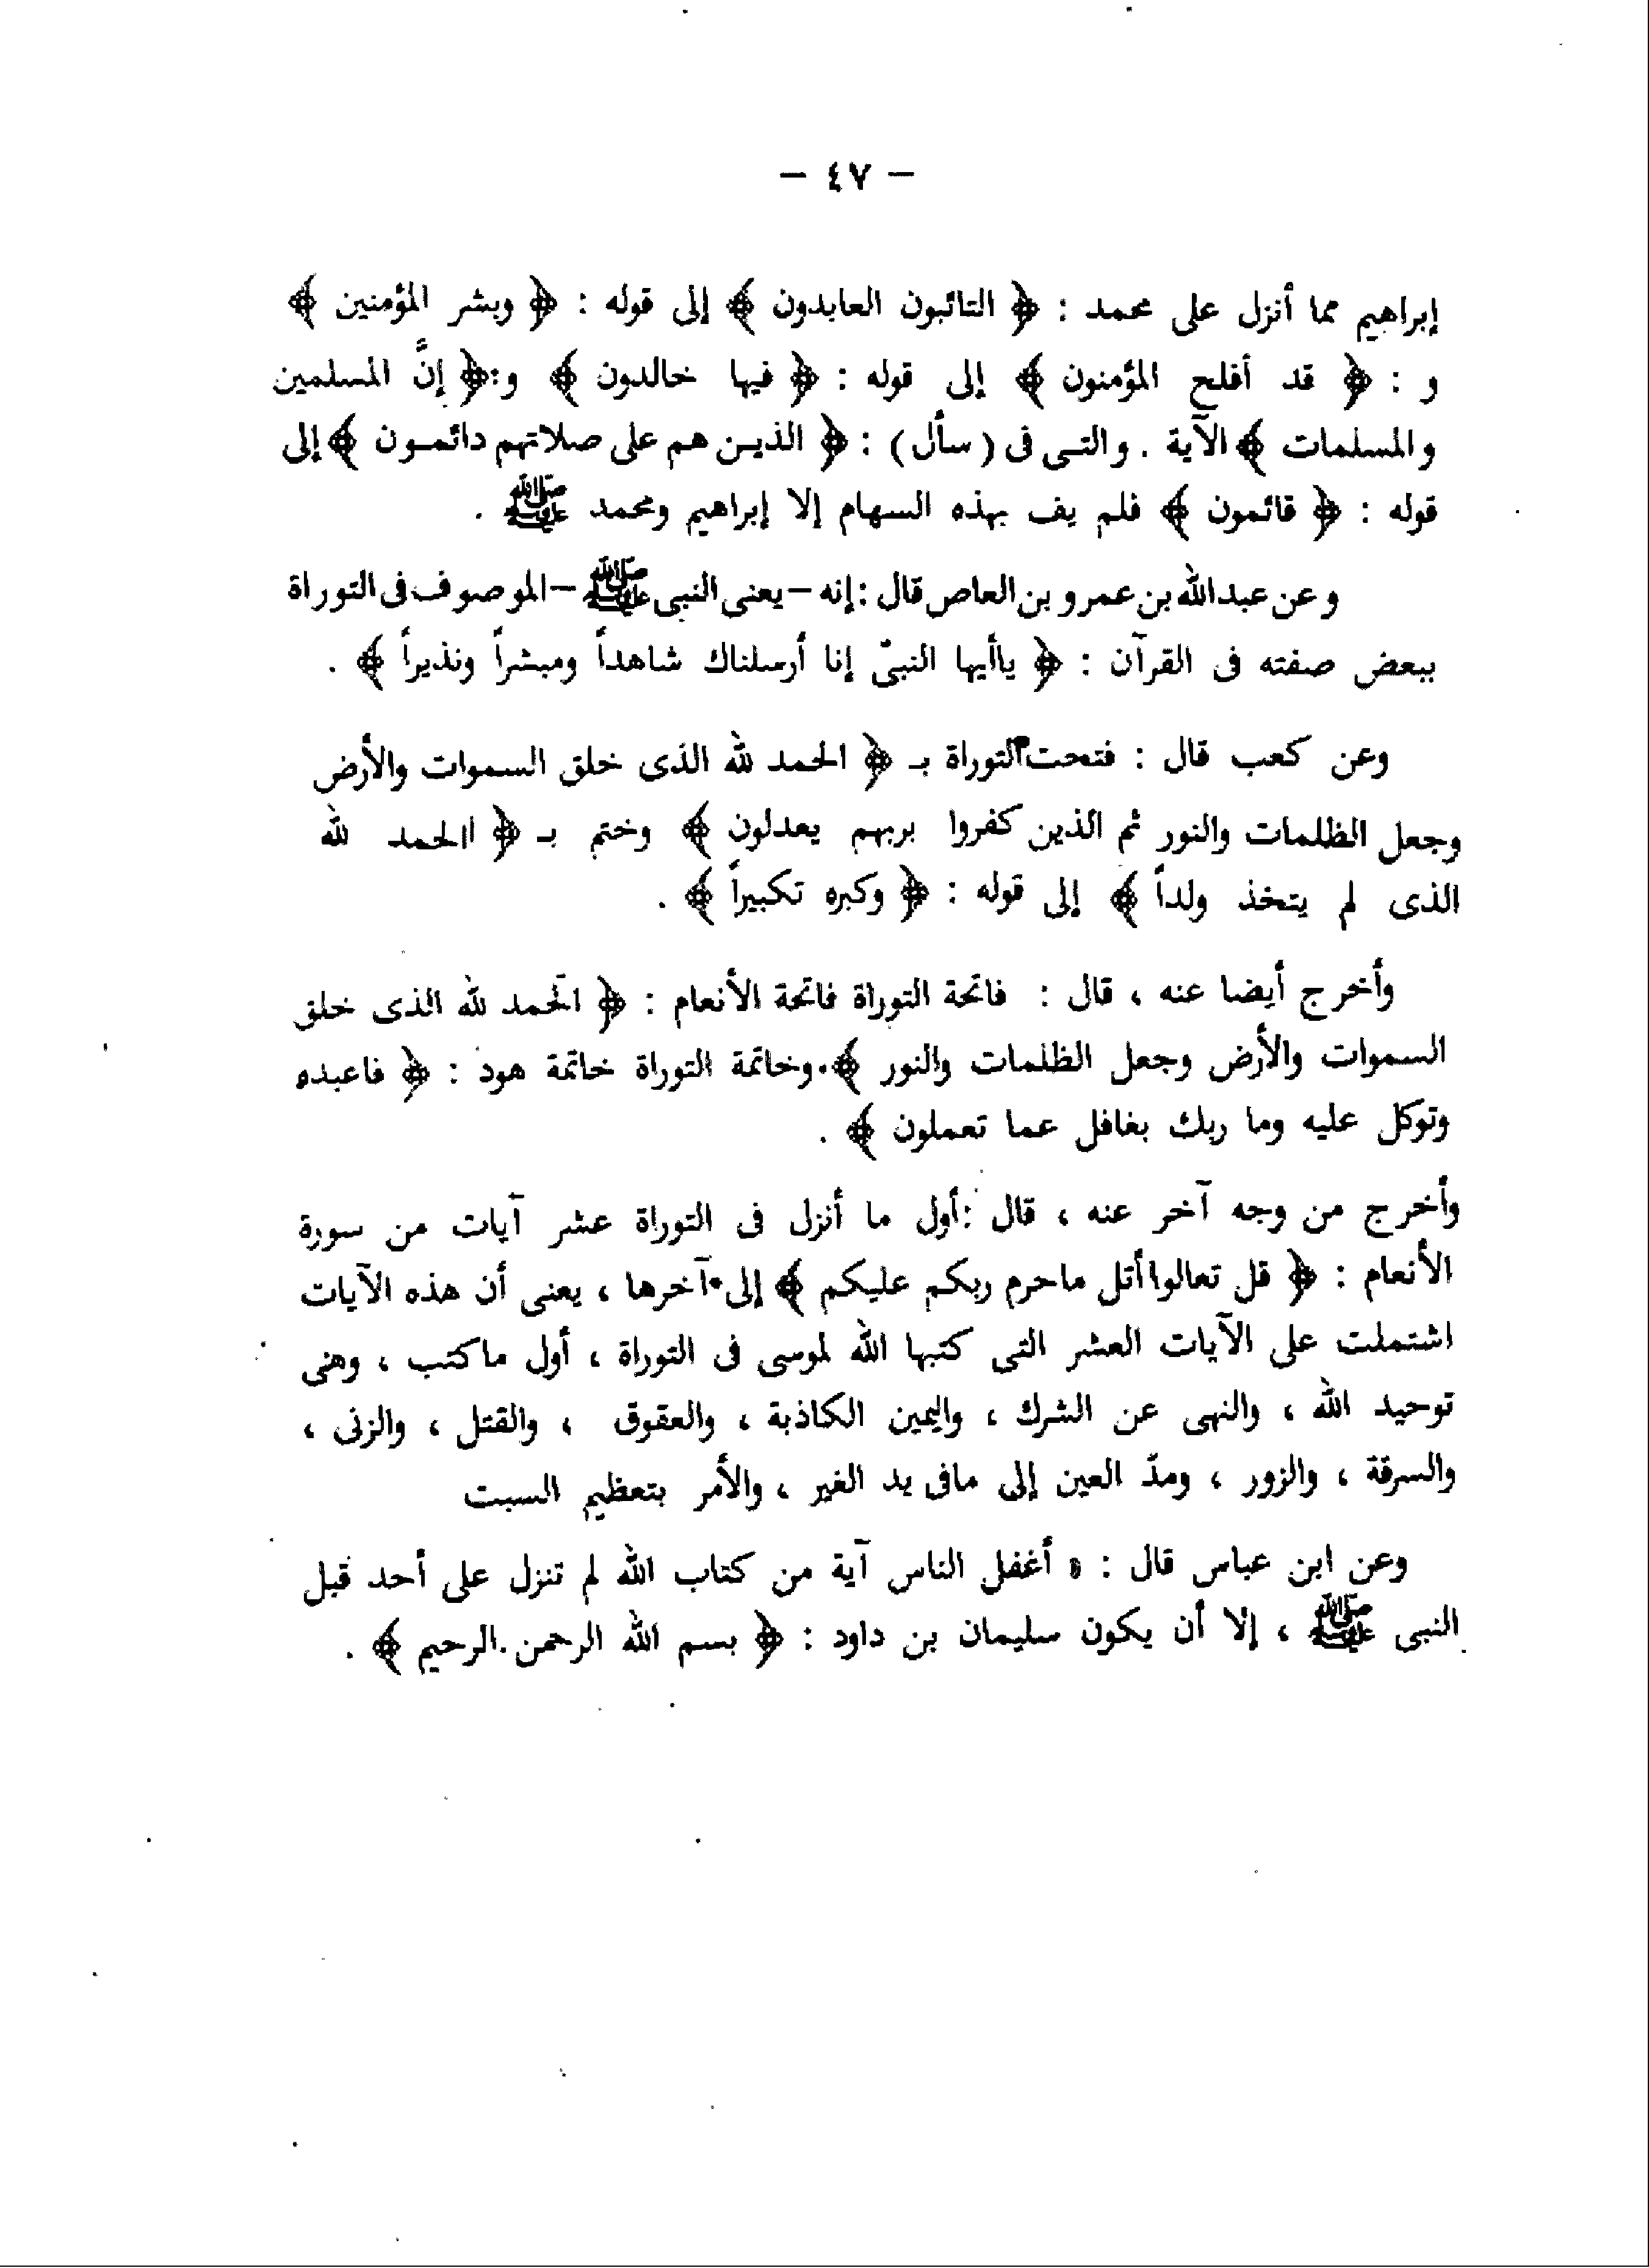 — ٤٧ —
إبراهيم مما أنزل على محمد : ﴿ التائبون العابدون ﴾ إلى قوله : ﴿ وبشر المؤمنين ﴾
و : ﴿ قد أفلح المؤمنون ﴾ إلى قوله : ﴿ فيها خالدون ﴾ و:﴿ إنَّ المسلمين
والمسلمات ﴾ الآية . والتى فى ( سأل ) : ﴿ الذين هم على صلاتهم دائمون ﴾ إلى
قوله : ﴿ قائمون ﴾ فلم يف بهذه السهام إلا إبراهيم ومحمد ﷺ .
وعن عبد الله بن عمرو بن العاص قال : إنه – يعنى النبى ﷺ – الموصوف فى التوراة
ببعض صفته فى القرآن : ﴿ ياأيها النبىّ إنا أرسلناك شاهداً ومبشراً ونذيراً ﴾ .
وعن كعب قال : فتحت التوراة بـ ﴿ الحمد لله الذى خلق السموات والأرض
وجعل الظلمات والنور ثم الذين كفروا بربهم يعدلون ﴾ وختم بـ ﴿ االحمد لله
الذى لم يتخذ ولداً ﴾ إلى قوله : ﴿ وكبره تكبيراً ﴾ .
وأخرج أيضا عنه ، قال : فاتحة التوراة فاتحة الأنعام : ﴿ الحمد لله الذى خلق
السموات والأرض وجعل الظلمات والنور ﴾.وخاتمة التوراة خاتمة هود : ﴿ فاعبده
وتوكل عليه وما ربك بغافل عما تعملون ﴾ .
وأخرج من وجه آخر عنه ، قال :أول ما أنزل فى التوراة عشر آيات من سورة
الأنعام : ﴿ قل تعالوا أتل ماحرم ربكم عليكم ﴾ إلى آخرها ، يعنى أن هذه الآيات
اشتملت على الآيات العشر التى كتبها الله لموسى فى التوراة ، أول ماكتب ، وهى
توحيد الله ، والنهى عن الشرك ، واليمين الكاذبة ، والعقوق ، والقتل ، والزنى ،
والسرقة ، والزور ، ومدّ العين إلى مافى يد الغير ، والأمر بتعظيم السبت
وعن ابن عباس قال : « أغفل الناس آية من كتاب الله لم تنزل على أحد قبل
النبى ﷺ ، إلا أن يكون سليمان بن داود : ﴿ بسم الله الرحمن.الرحيم ﴾ .